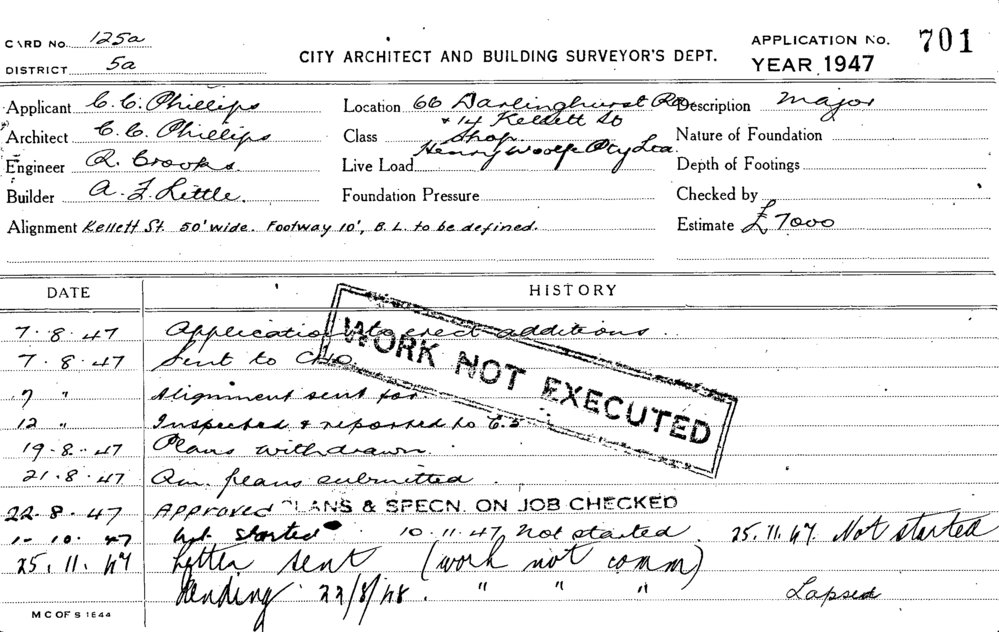 CARD No. 125a
DISTRICT 5a
CITY ARCHITECT AND BUILDING SURVEYOR'S DEPT.
APPLICATION No. 701
YEAR 1947
Applicant C. C. Phillips
Location 66 Darlinghurst Rd
Description major
Architect C. C. Phillips
& 14 Kellett St
Class Shop
Nature of Foundation
Engineer R. Crooks.
Live Load Henry Woolfe Pty Ltd
Depth of Footings
Builder A. F. Little.
Foundation Pressure
Checked by
Alignment Kellett St. 50' wide. Footway 10', B.L. to be defined.
Estimate £7000
DATE HISTORY
7.8.47 Application to erect additions
7.8.47 Sent to CHO.
7 " Alignment sent for
12 " Inspected & reported to C.S
19.8.47 Plans withdrawn.
21.8.47 Am. plans submitted
22.8.47 APPROVED PLANS & SPECN. ON JOB CHECKED
1.10.47 Not started 10.11.47 Not started. 25.11.47. Not started
25.11.47 Letter sent (work not comm)
Pending 22/8/48. " " " Lapsed
M C OF S 1644
WORK NOT EXECUTED